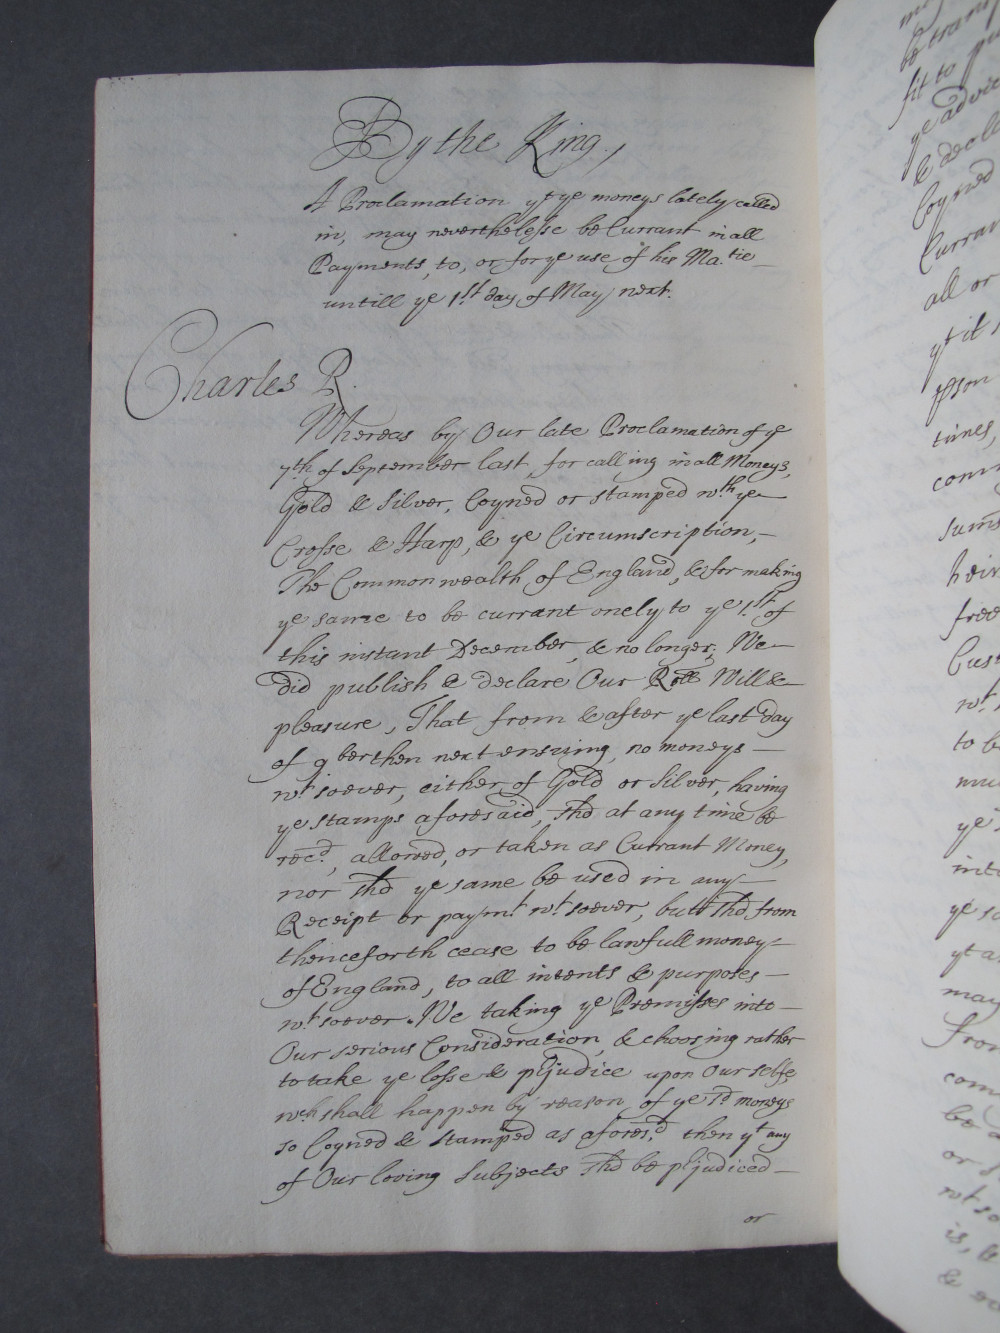 By the King,
A Proclamation yt ye moneys lately called
in, may neverthelesse be Currant in all
Payments, to, or for ye use of his Ma.tie
untill ye 1st day of May next.
Charles R.
Whereas by Our late Proclamation of ye
7th of September last, for calling in all Moneys,
Gold & Silver, Coyned or stamped wth ye
Crosse & Harp, & ye Circumscription,
The Commonwealth of England, & for making
ye same to be currant onely to ye 1st of
this instant December, & no longer, We
did publish & declare Our Roll Will &
pleasure, That from & after ye last day
of 9ber then next ensuing, no moneys
wt soever, either of Gold or Silver, having
ye stamps aforesaid, shd at any time be
recd, allowed, or taken as Currant Money,
nor shd ye same be used in any
Receipt or paymt wt soever, butt shd from
thenceforth cease to be lawfull money
of England, to all intents & purposes
wt soever. We taking ye Premisses into
Our serious Consideration, & choosing rather
to take ye losse & pjudice upon Our selfe
wch shall happen by reason of ye sd moneys
so Coyned & stamped as aforesd, then yt any
of Our loving Subjects shd be pjudiced
or
be tran
fit to pu
ye advic
Coyned
Curran
all or
yt it
pson
times,
com
sum
heir
free
Cust
wt
to b
mu
ye
int
ye s
yt a
may
From
com
be
or
wt so
is, &
&